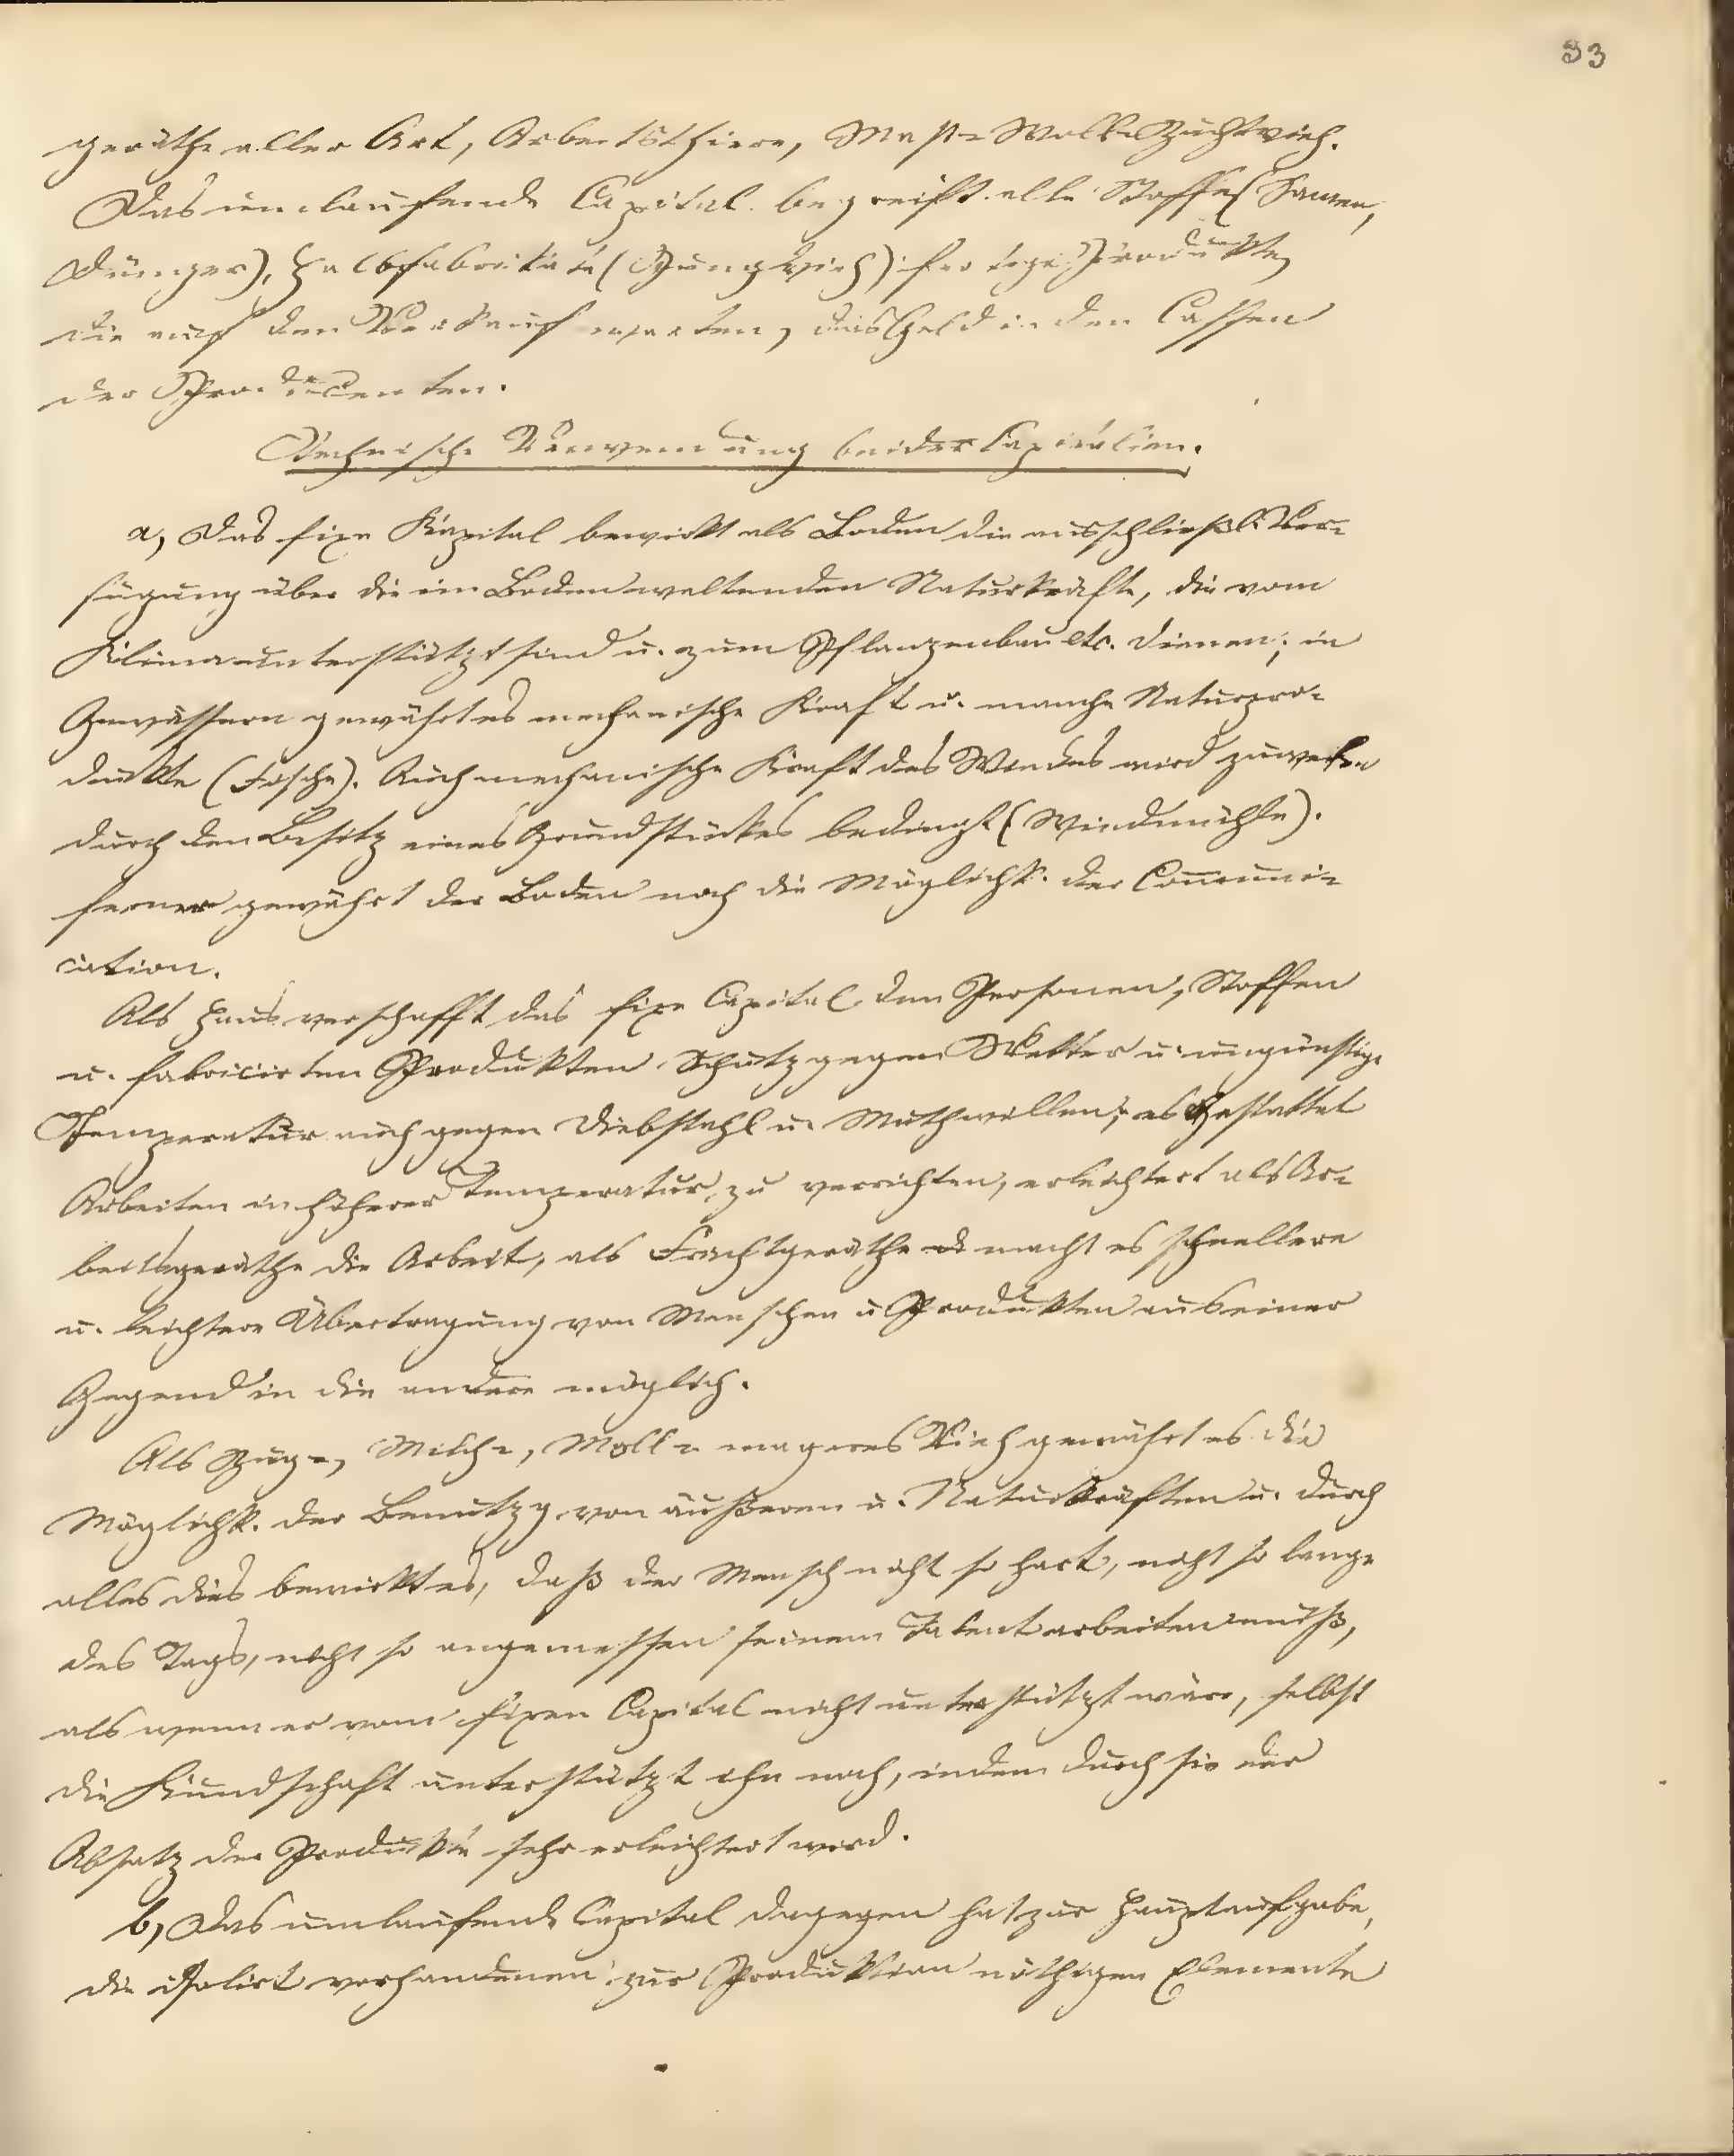 33
geräthe aller Art, Arbeitsthiere, Mast= Woll= Zuchtvieh.
Das umlaufende Capital begreift alle Stoffe (Samen,
Dünger), Halbfabrikate (Jungvieh) fertige Produkte,
die auf den Verkauf warten, das Geld in den Cassen
der Producenten.
Technische Verwendung beider Capitalien.
a, Das fixe Kapital bewirkt als Boden die ausschließl. Ver=
fügung über die im Boden waltenden Naturkräfte, die vom
Klima unterstützt sind u. zum Pflanzenbau etc. dienen; in
Gewässern gewährt es mechanische Kraft u. manche Naturpro=
dukte (Fische). Auch mechanische Kraft des Windes wird zuweilen
durch den Besitz eines Grundstückes bedingt (Windmühle).
ferner gewährt der Boden noch die Möglichk. der Communi=
cation.
Als Haus verschafft das fixe Capital den Personen, Stoffen
u. fabricirten Produkten Schutz gegen Wetter u. ungünstige
Temperatur auch gegen Diebstahl u. Muthwillen; es gestattet
Arbeiten in höherer Temperatur zu verrichten, erleichtert als Ar=
beitsgeräthe die Arbeit, als Frachtgeräthe macht es schnellere
u. leichtere Übertragung von Menschen u Produkten aus einer
Gegend in die andere möglich.
Als Zug=, Milch=, Woll= mageres Vieh gewährt es die
Möglichk. der Benutzg. von äußeren u. Naturkräften u. durch
alles dies bewirkt es, daß der Mensch nicht so hart, nicht so lange
des Tags, nicht so angemessen seinem Talent arbeiten muß,
als wenn er vom fixen Capital nicht unterstützt wäre, selbst
die Kundschaft unterstützt ihn noch, indem durch sie der
Absatz der Produkte sehr erleichtert wird.
b, Das umlaufende Capital dagegen hat zur Hauptaufgabe,
die isolirt vorhandenen zur Produktion nöthigen Elemente